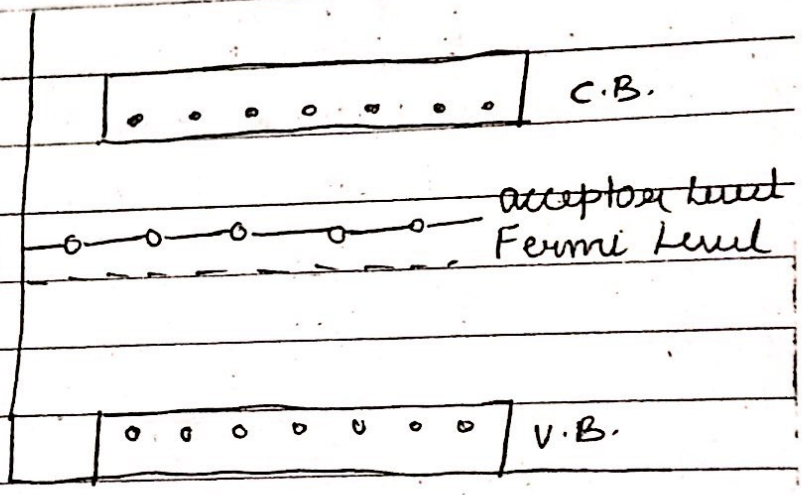 C.B.
acceptor Level
Fermi Level
V.B.